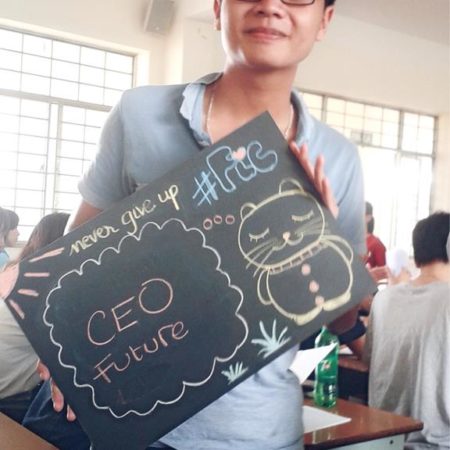 never give up
#Fic
CEO
Future